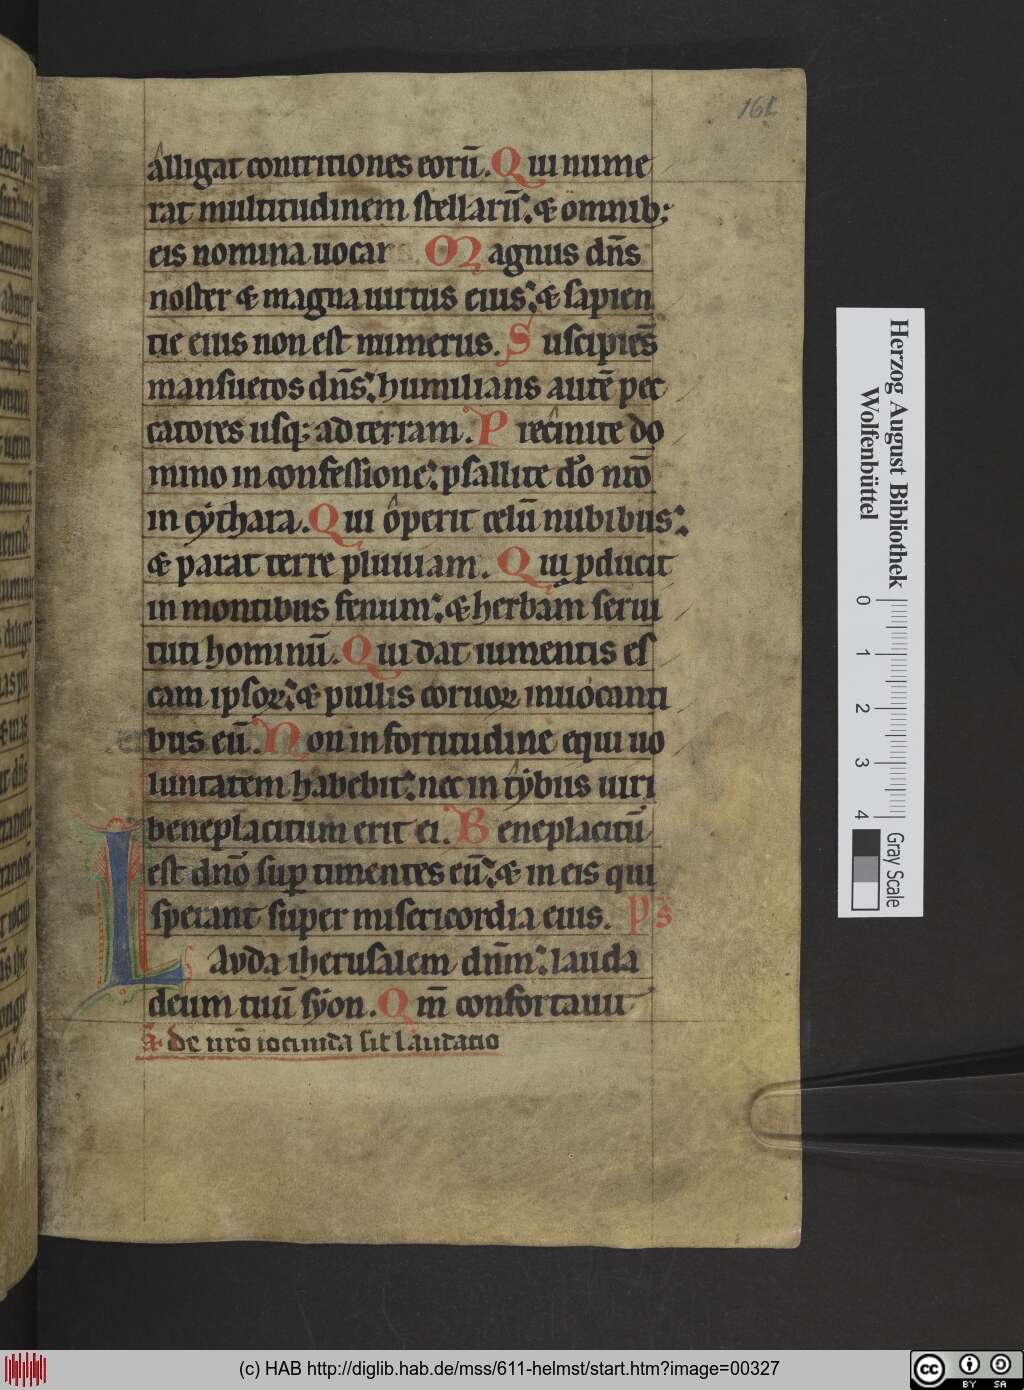 161
alligat contritiones eorū. Qui nume
rat multitudinem stellarū: & omnib;
eis nomina uocat Magnus dn̄s
noster & magna uirtus eius: & sapien
tie eius non est numerus. Suscipiēs
mansuetos dn̄s: humilians autē pec
catores usq; ad terram. Precinite do
mino in confessione: psallite dō nrō
in cythara. Qui operit celū nubibus:
& parat terre pluuiam. Qui pducit
in montibus fenum: & herbam serui
tuti hominū. Qui dat iumentis es
cam ipsoꝝ: & pullis coruoꝝ inuocanti
bus eū. Non in fortitudine equi uo
luntatem habebit: nec in tybiis uiri
beneplacitum erit ei. Beneplacitū
est dn̄o suꝑ timentes eū: & in eis qui
sperant super misericordia eius. Ps̄
Lauda iherusalem dn̄m: lauda
deum tuū syon. Qm̄ confortauit
ā. de nrō iocunda sit laudatio
Herzog August Bibliothek
Wolfenbüttel
0 1 2 3 4
Gray Scale
(c) HAB http://diglib.hab.de/mss/611-helmst/start.htm?image=00327
cc BY SA